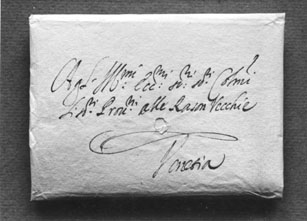 Agl' Ill.mi et Ecc.mi Sig.ri Sig.ri Col.mi
Li Sig.ri Prov.ri alle Rason Vecchie
Venetia